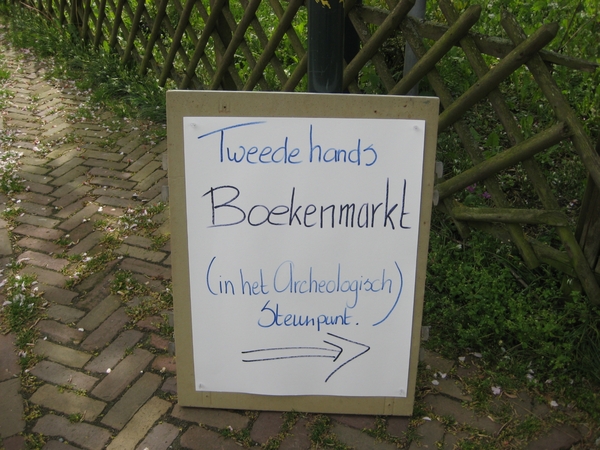 Tweede hands
Boekenmarkt
(in het Archeologisch)
Steunpunt.